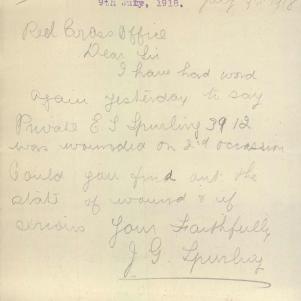 9th July, 1918.
July 9th 1918
Red Cross Office
Dear Sir
I have had word
again yesterday to say
Private E S Spurling 3912
was wounded on 2nd occasion
Could you find out the
state of wound & if
serious Your Faithfully
J. G. Spurling